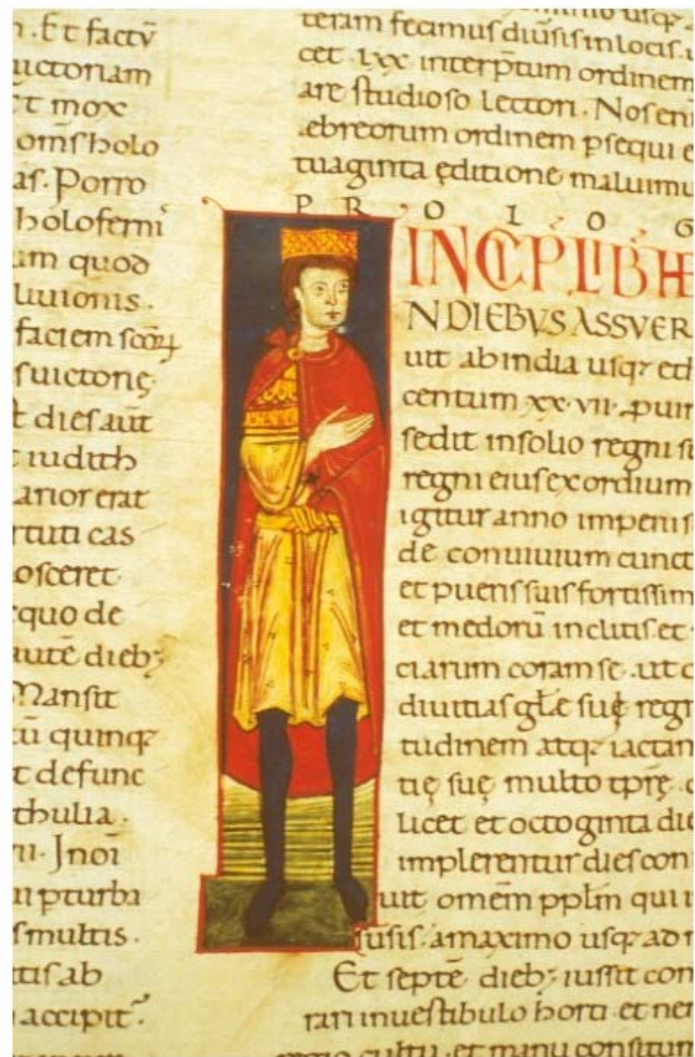 n. Et factū
uictoriam
Et mox
omīs holo
as. Porro
holoferni
um quod
liuionis.
faciem scōꝝ
suictorię
t dies aūt
t iudith
lariorerat
rtuti cas
osceret
equo de
autē dieb;
Mansit
cū quinq;
t defunc
thulia.
ii. Inoī
ui pturba
s multis.
tis ab
accipit.
teram fecimus diūsis in locis.
cet lxx interp̄tum ordinem
are studioso lectori. Nos eni
ebreorum ordinem psequi e
tuaginta editione maluimu
P R O L O G
INCIP LIB H
N DIEBVS ASSVER
uit ab india usq; eth
centum xx.vii. puin
sedit in solio regni s
regni eius exordium
igitur anno imperii s
de conuiuium cunct
et pueris suis fortissim
et medorū inclitis. et
ciarum coram se. ut o
diuitias glē suę regn
tudinem atq; iactan
tię suę multo tpr̄e.
licet et octoginta die
implerentur dies con
uit omēm pplm̄ qui i
susis. a maximo usq; ad
Et septē dieb; iussit con
rari in uestibulo horti et ne
regio cultu et manu consitum